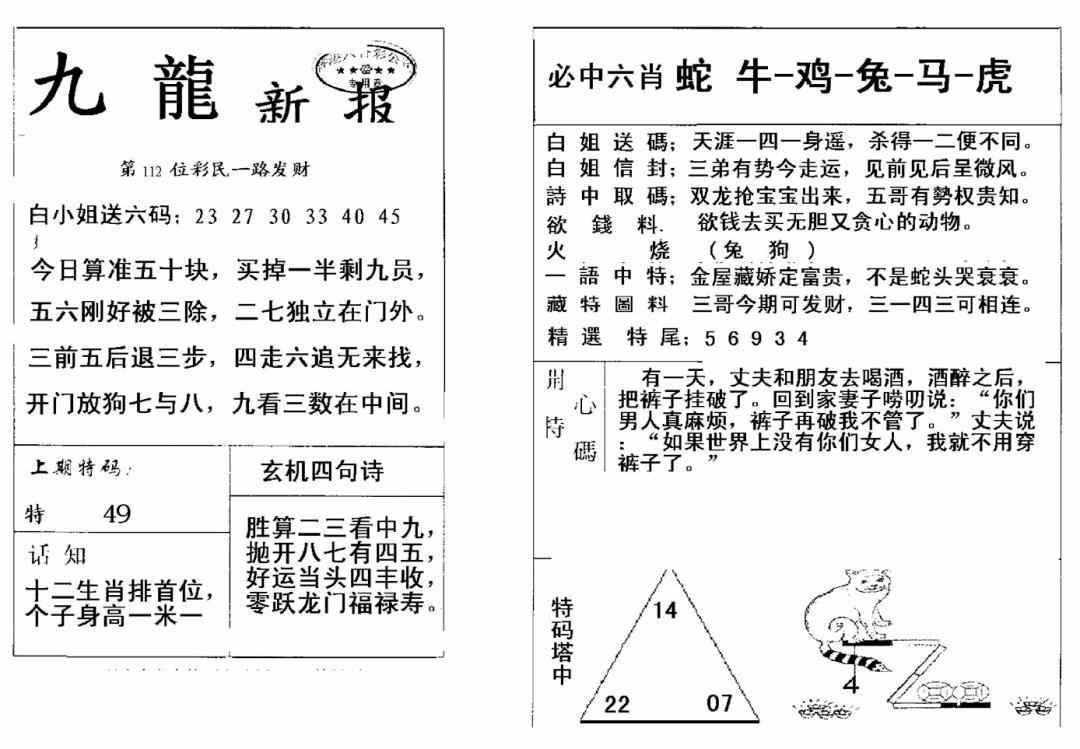 九龍新报
★★ ★★
专用章
第112位彩民一路发财
白小姐送六码；23 27 30 33 40 45
今日算准五十块，买掉一半剩九员，
五六刚好被三除，二七独立在门外。
三前五后退三步，四走六追无来找，
开门放狗七与八，九看三数在中间。
上期特码：
特 49
话知
十二生肖排首位，
个子身高一米一
玄机四句诗
胜算二三看中九，
抛开八七有四五，
好运当头四丰收，
零跃龙门福禄寿。
必中六肖 蛇 牛-鸡-兔-马-虎
白姐送碼；天涯一四一身遥，杀得一二便不同。
白姐信封；三弟有势今走运，见前见后呈微风。
詩中取碼；双龙抢宝宝出来，五哥有勢权贵知。
欲錢料. 欲钱去买无胆又贪心的动物。
火烧（兔 狗）
一語中特；金屋藏娇定富贵，不是蛇头哭哀哀。
藏特圖料 三哥今期可发财，三一四三可相连。
精選特尾；5 6 9 3 4
心特碼
有一天，丈夫和朋友去喝酒，酒醉之后，
把裤子挂破了。回到家妻子唠叨说：“你们
男人真麻烦，裤子再破我不管了。”丈夫说
：“如果世界上没有你们女人，我就不用穿
裤子了。”
特码塔中
14
22 07
4